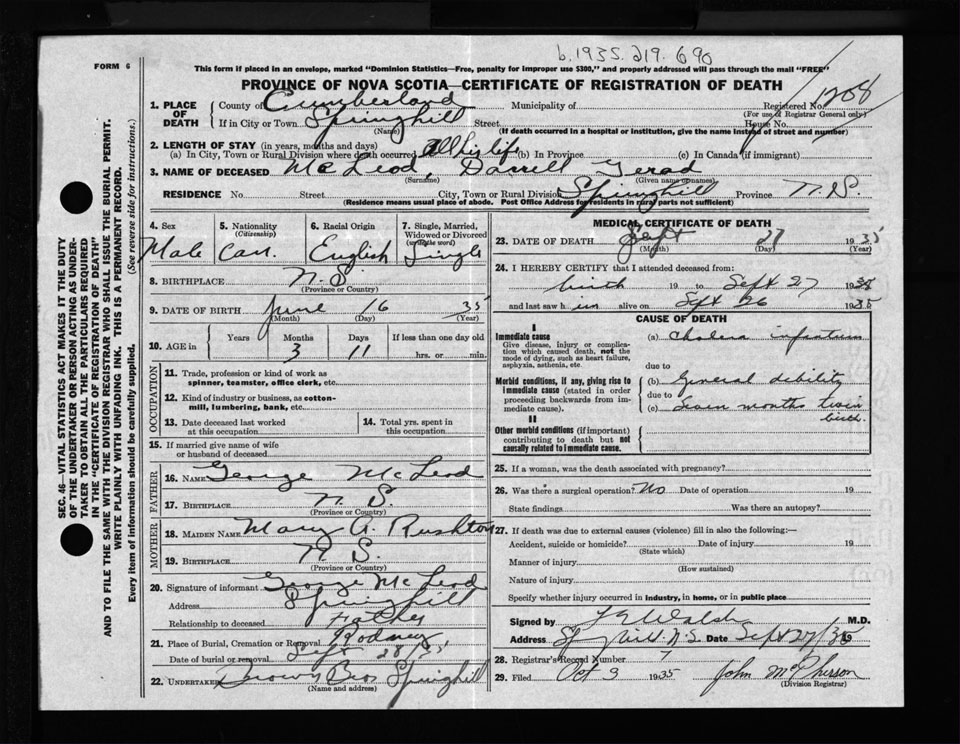 b. 1935. 219. 690
FORM 6
This form if placed in an envelope, marked "Dominion Statistics—Free, penalty for improper use $300," and properly addressed will pass through the mail "FREE"
PROVINCE OF NOVA SCOTIA—CERTIFICATE OF REGISTRATION OF DEATH
1208
1. PLACE OF DEATH
County of Cumberland Municipality of Registered No.
(For use of Registrar General only)
If in City or Town Springhill Street House No.
(Name) (If death occurred in a hospital or institution, give the name instead of street and number)
2. LENGTH OF STAY (in years, months and days)
(a) In City, Town or Rural Division where death occurred All his life (b) In Province (c) In Canada (if immigrant)
3. NAME OF DECEASED McLeod, Darrell Gerad
(Surname) (Given name or names)
RESIDENCE No. Street City, Town or Rural Division Springhill Province N.S.
(Residence means usual place of abode. Post Office Address for residents in rural parts not sufficient)
4. Sex
Male
5. Nationality (Citizenship)
Can.
6. Racial Origin
English
7. Single, Married, Widowed or Divorced (write the word)
Single
8. BIRTHPLACE N.S.
(Province or Country)
9. DATE OF BIRTH June 16 35
(Month) (Day) (Year)
10. AGE in
Years Months Days If less than one day old
3 11 hrs. or min.
OCCUPATION
11. Trade, profession or kind of work as spinner, teamster, office clerk, etc.
12. Kind of industry or business, as cotton-mill, lumbering, bank, etc.
13. Date deceased last worked at this occupation
14. Total yrs. spent in this occupation
15. If married give name of wife or husband of deceased
FATHER
16. NAME George McLeod
17. BIRTHPLACE N.S.
(Province or Country)
MOTHER
18. MAIDEN NAME Mary A. Rushton
19. BIRTHPLACE N.S.
(Province or Country)
20. Signature of informant George McLeod
Address Springhill
Relationship to deceased Father
21. Place of Burial, Cremation or Removal Rodney,
Date of burial or removal Sept 28/35
22. UNDERTAKER Brown Bros Springhill
(Name and address)
MEDICAL CERTIFICATE OF DEATH
23. DATE OF DEATH Sept 27 1935
(Month) (Day) (Year)
24. I HEREBY CERTIFY that I attended deceased from:
birth 19 to Sept 27 1935
and last saw him alive on Sept 26 1935
CAUSE OF DEATH
I
Immediate cause
Give disease, injury or complication which caused death, not the mode of dying, such as heart failure, asphyxia, asthenia, etc.
(a) Cholera infantum
due to
Morbid conditions, if any, giving rise to immediate cause (stated in order proceeding backwards from immediate cause).
(b) General debility
due to
(c) Seven months twin birth.
II
Other morbid conditions (if important) contributing to death but not causally related to immediate cause.
25. If a woman, was the death associated with pregnancy?
26. Was there a surgical operation? No Date of operation 19
State findings Was there an autopsy?
27. If death was due to external causes (violence) fill in also the following:—
Accident, suicide or homicide? Date of injury 19
(State which)
Manner of injury
(How sustained)
Nature of injury
Specify whether injury occurred in industry, in home, or in public place
Signed by Walsh M.D.
Address Springhill N.S. Date Sept 27/35 19
28. Registrar's Record Number 7
29. Filed Oct 3 1935 John McPherson
(Division Registrar)
SEC. 46—VITAL STATISTICS ACT MAKES IT THE DUTY
OF THE UNDERTAKER OR PERSON ACTING AS UNDERTAKER TO OBTAIN ALL THE PARTICULARS REQUIRED
IN THE "CERTIFICATE OF REGISTRATION OF DEATH"
AND TO FILE THE SAME WITH THE DIVISION REGISTRAR WHO SHALL ISSUE THE BURIAL PERMIT.
WRITE PLAINLY WITH UNFADING INK. THIS IS A PERMANENT RECORD.
Every item of information should be carefully supplied. (See reverse side for instructions.)